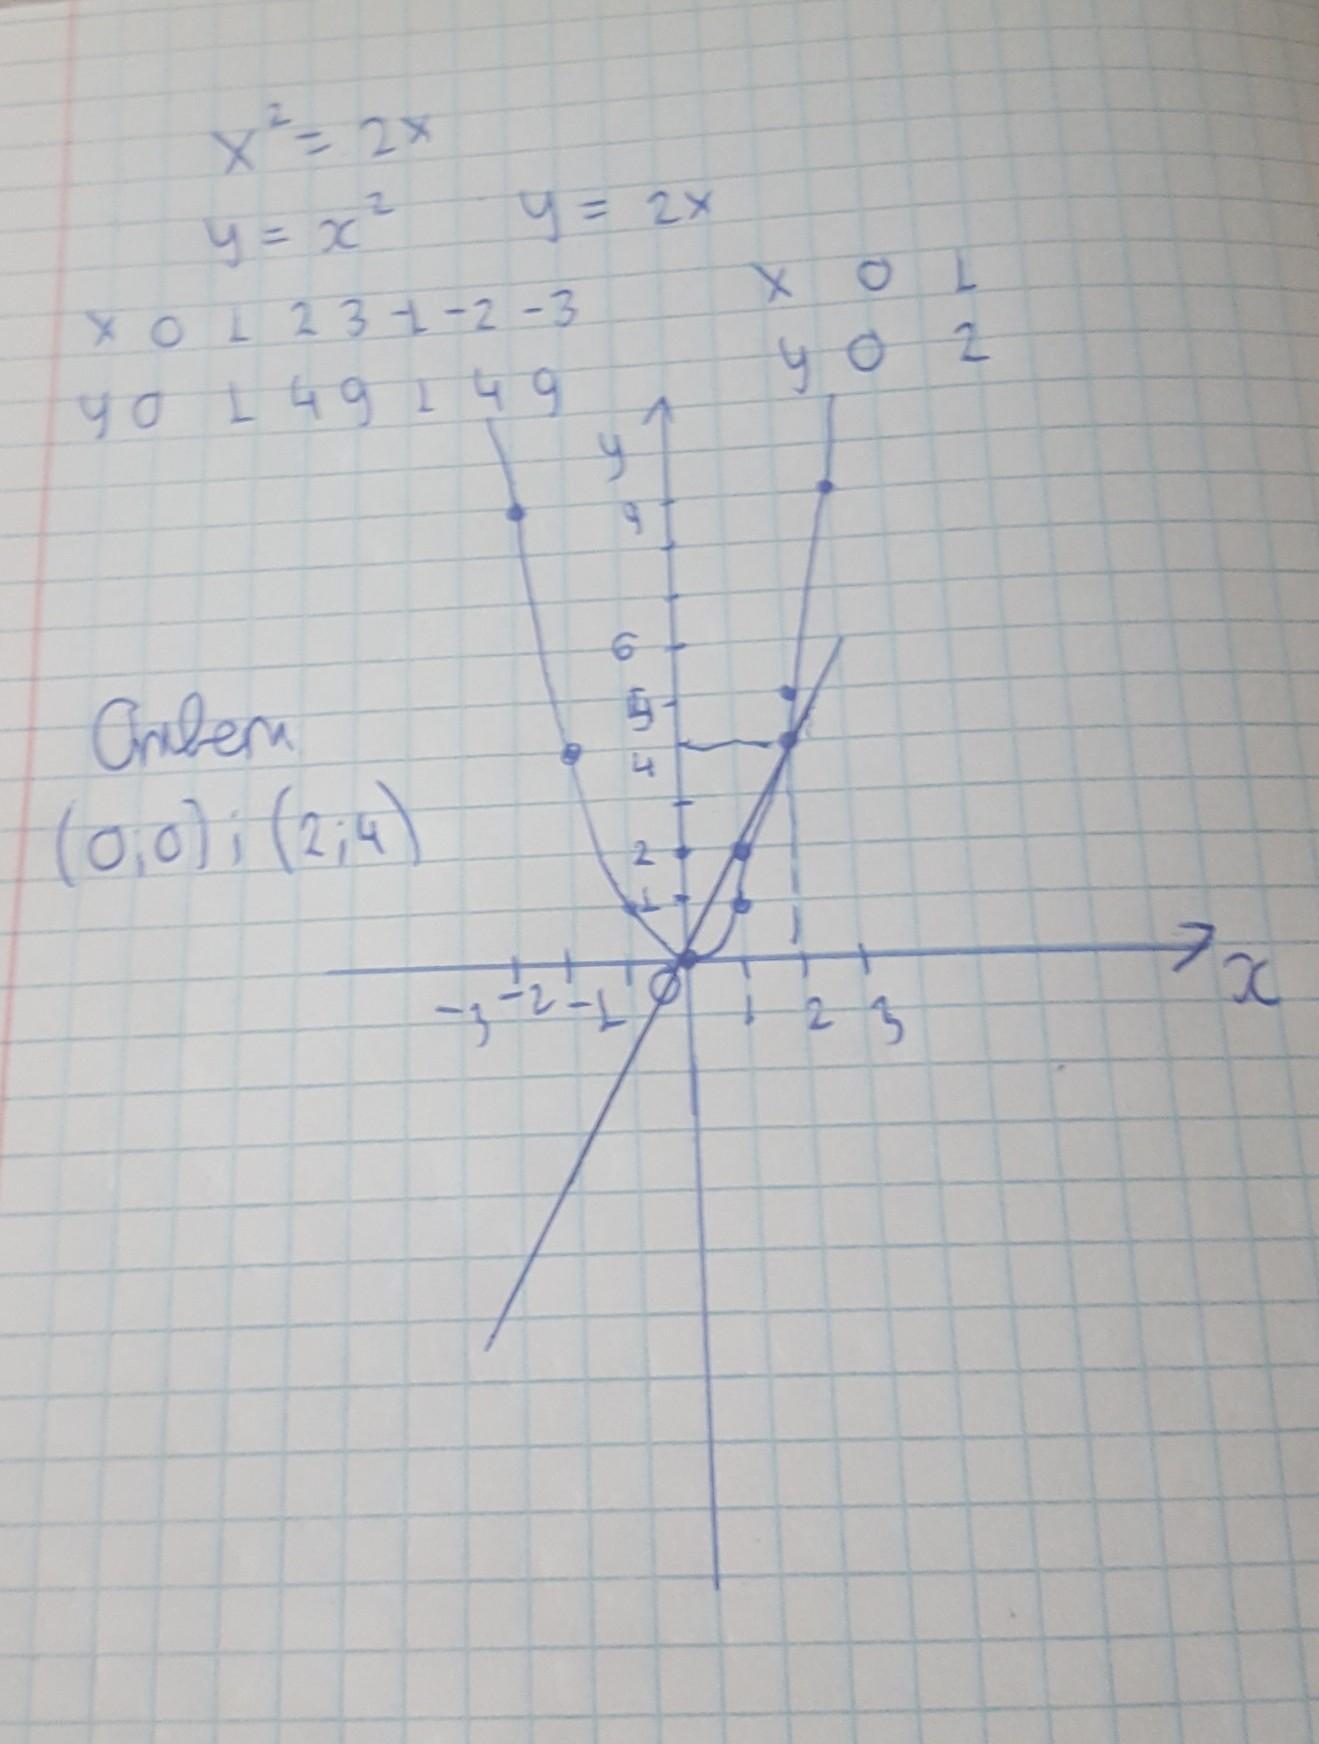 x² = 2x
y = x² y = 2x
x 0 1 2 3 -1 -2 -3
y 0 1 4 9 1 4 9
x 0 1
y 0 2
y
9
6
5
4
2
1
-3 -2 -1 0 1 2 3
x
Ответ
(0;0); (2;4)